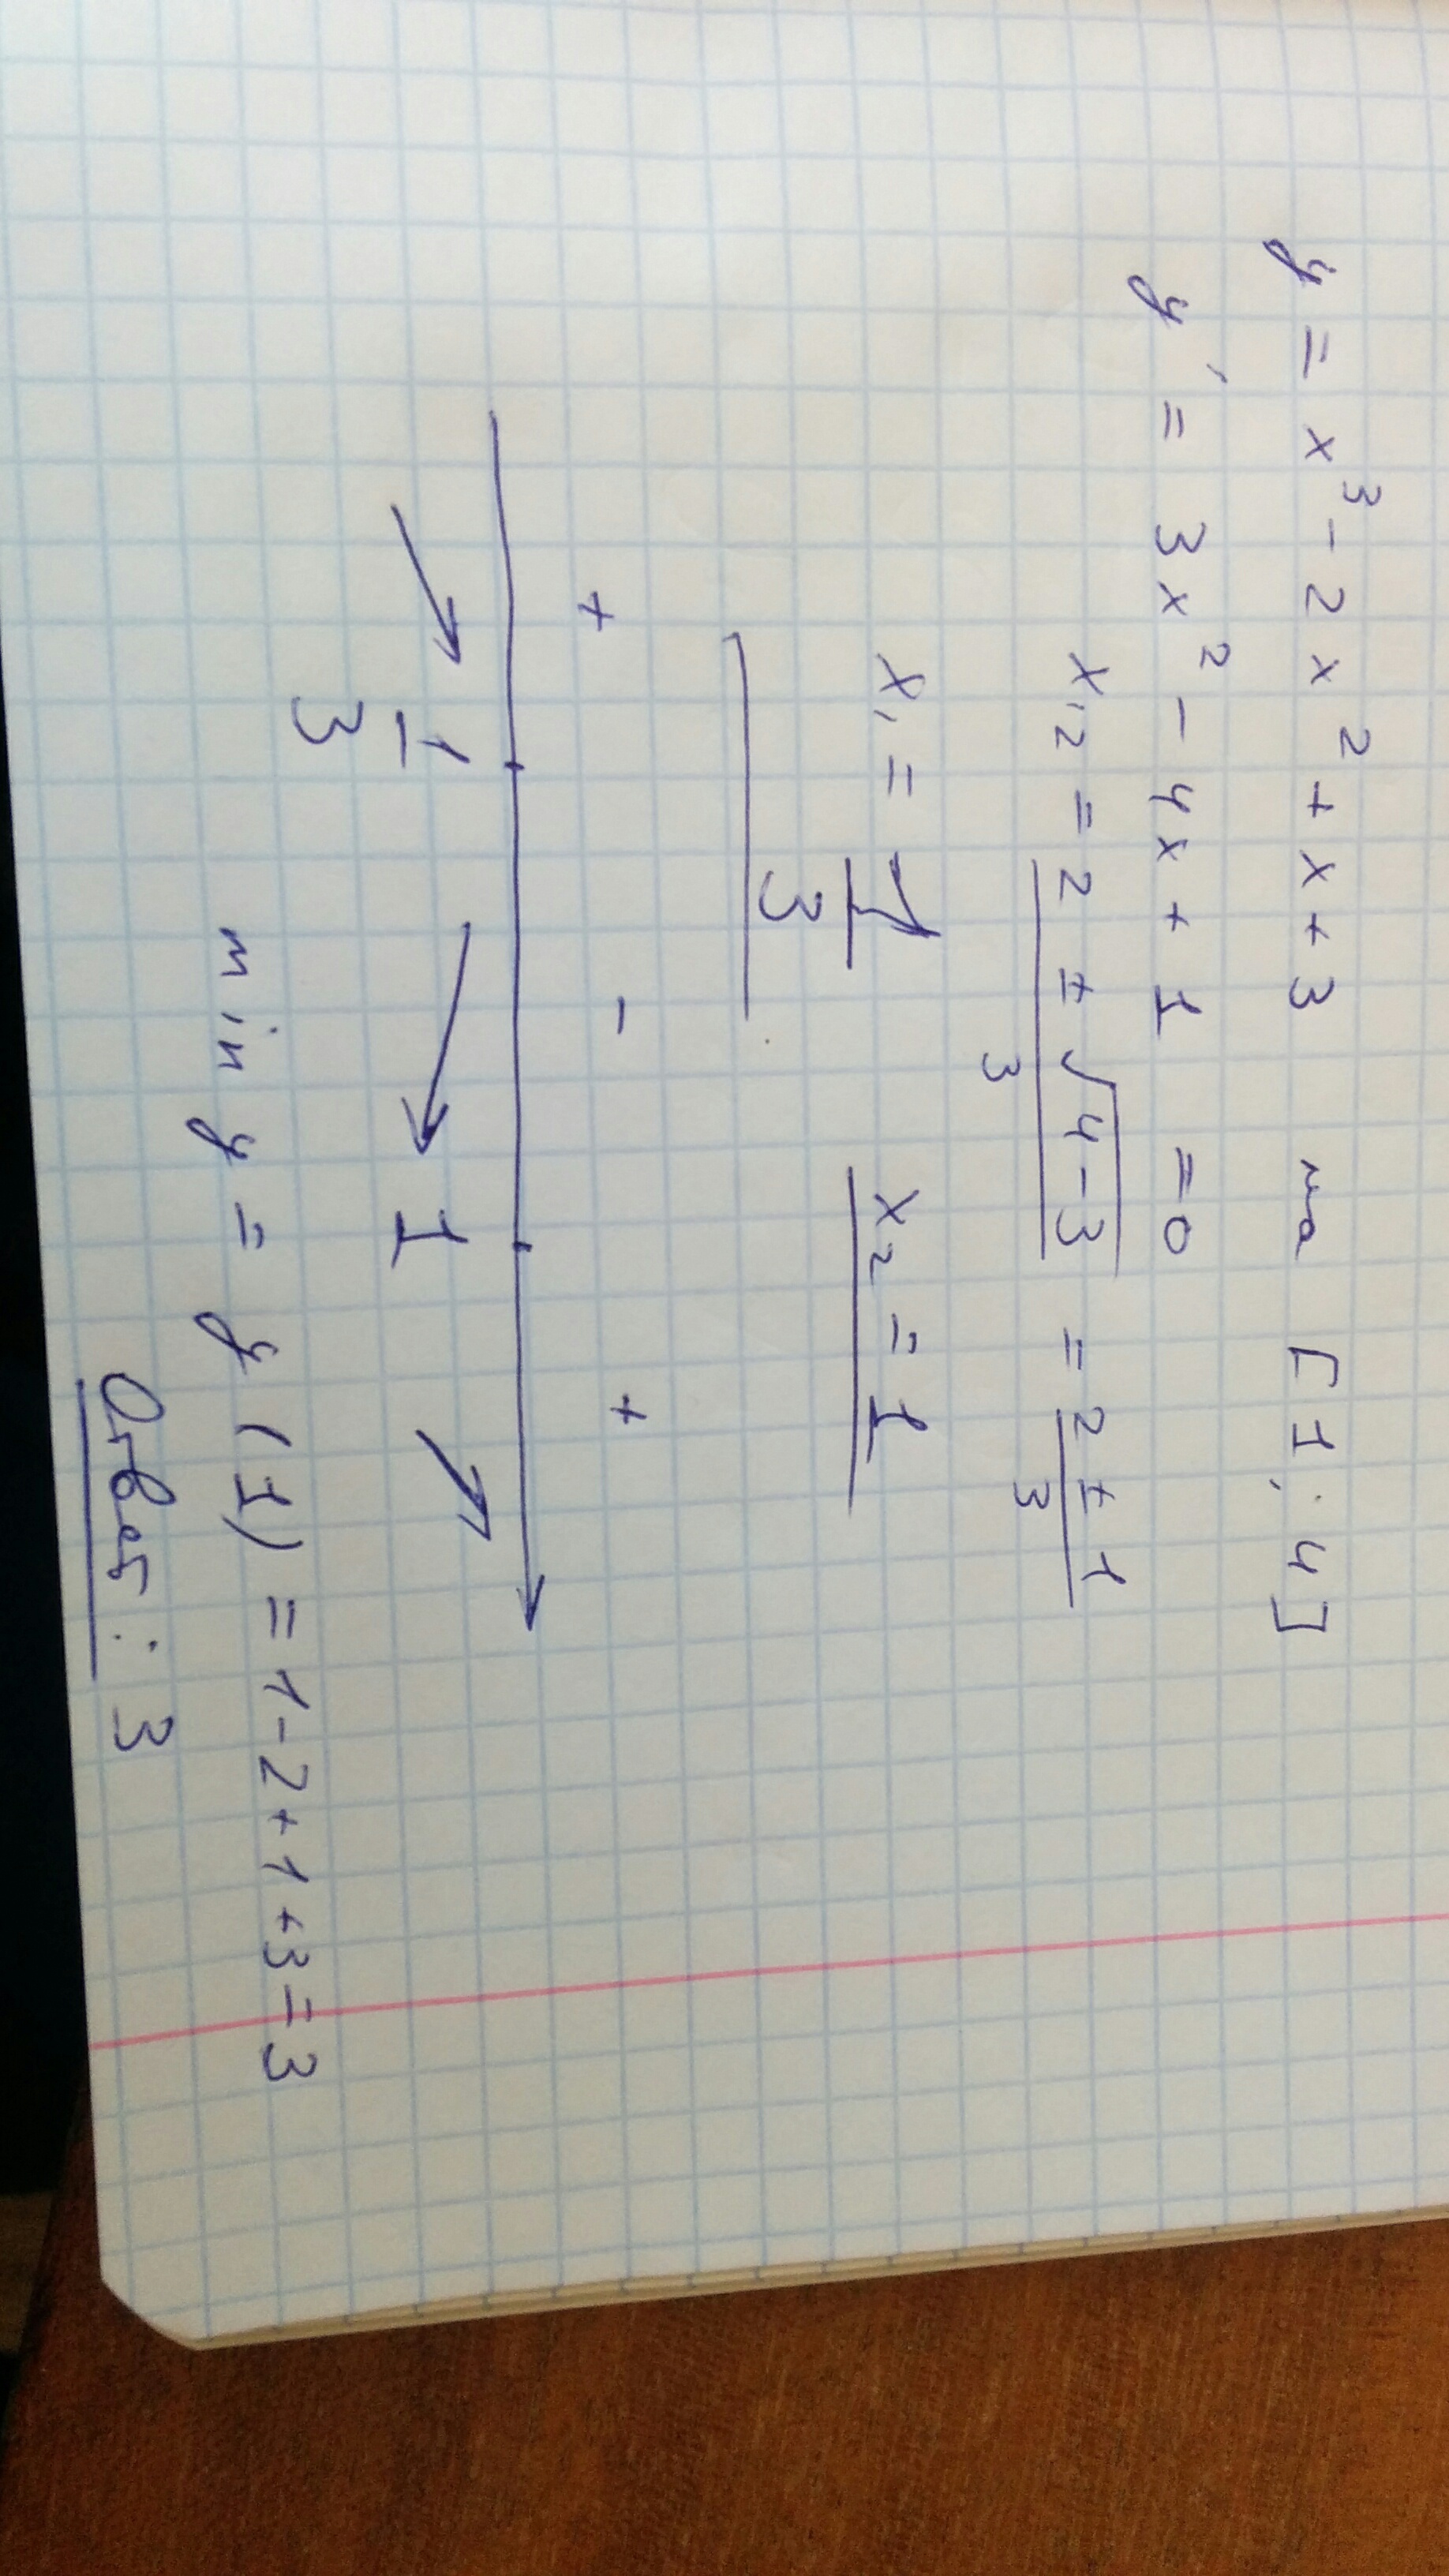 y = x³ - 2x² + x + 3 на [1; 4]
y' = 3x² - 4x + 1 = 0
x₁,₂ = (2 ± √(4-3))/3 = (2 ± 1)/3
x₁ = 1/3 x₂ = 1
+ - +
1/3 1
min y = y(1) = 1-2+1+3=3
Ответ: 3